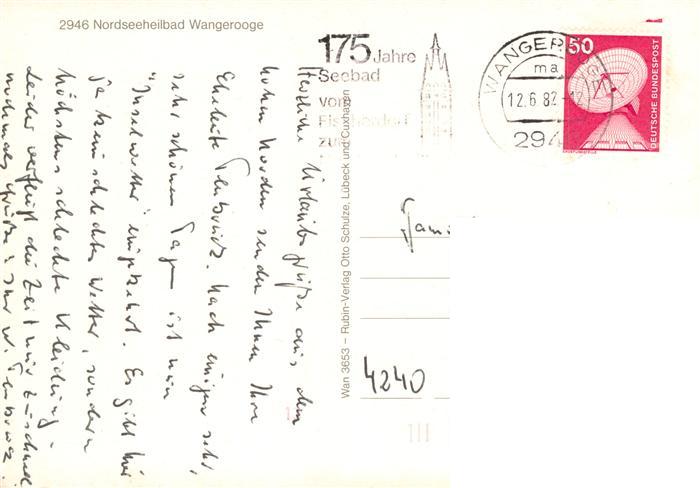 2946 Nordseeheilbad Wangerooge
175 Jahre
Seebad
vom
Fischerdorf
zum
WANGEROOGE
ma
12.6.82
294
50
DEUTSCHE BUNDESPOST
Herzliche Urlaubsgrüße aus dem
hohen Norden senden Ihnen Ihre
Eheleute Tenbrock. Nach einigen sehr,
sehr schönen Tagen ist nun
"Inselwetter" eingekehrt. Es gibt hier
ja kein schlechtes Wetter, sondern
höchstens schlechte Kleidung.
Leider verfliegt die Zeit nur zu schnell
nochmals Grüße
Wan 3653 – Rubin-Verlag Otto Schulze, Lübeck und Cuxhaven
Fam
4240